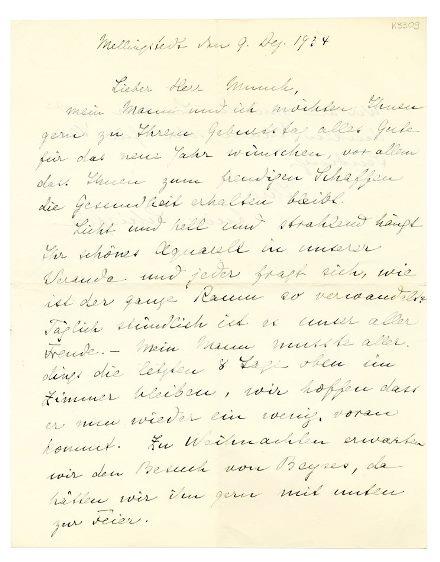 K3309
Mellingstedt den 9. Dez. 1934
Lieber Herr Munch,
mein Mann und ich möchten Ihnen
gern zu Ihrem Geburtstag alles Gute
für das neue Jahr wünschen, vor allem
dass Ihnen zum freudigen Schaffen
die Gesundheit erhalten bleibt.
Licht und hell und strahlend hängt
Ihr schönes Aquarell in unserer
Veranda und jeder fragt sich, wie
ist der ganze Raum so verwandelt.
Täglich stündlich ist es unser aller
Freude. – Mein Mann musste aller-
dings die letzten 8 Tage oben im
Zimmer bleiben, wir hoffen dass
er nun wieder ein wenig voran
kommt. Zu Weihnachten erwarten
wir den Besuch von Beyses, da
hätten wir ihn gern mit unten
zur Feier.